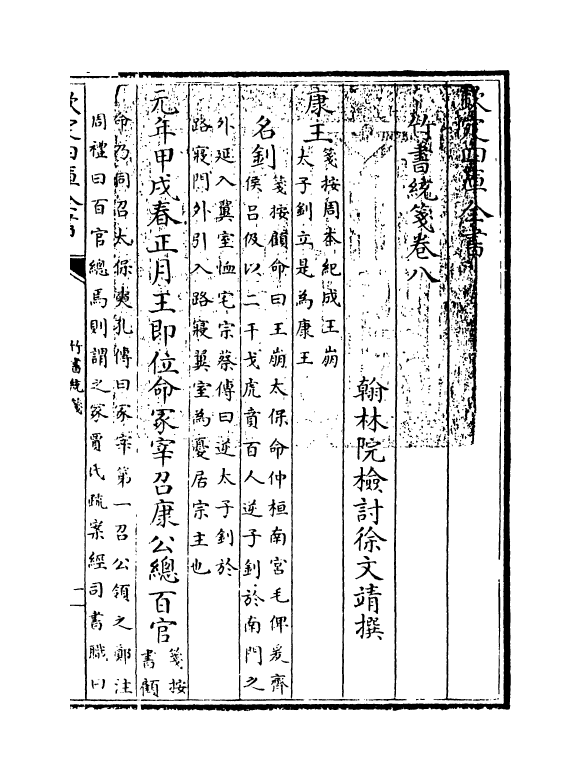 欽定四庫全書
竹書統箋卷八
翰林院檢討徐文靖撰
康王
箋按周本紀成王崩
太子釗立是為康王
名釗
箋按顧命曰王崩太保命仲桓南宮毛俾爰齊
侯呂伋以二干戈虎賁百人逆子釗於南門之
外延入翼室恤宅宗蔡傳曰逆太子釗於
路寢門外引入路寢翼室為憂居宗主也
元年甲戌春正月王即位命冢宰召康公總百官
箋按
書顧
命乃同召太保奭孔傳曰冢宰第一召公領之鄭注
周禮曰百官總焉則謂之冢賈氏疏案經司書職曰
欽定四庫全書
竹書統箋